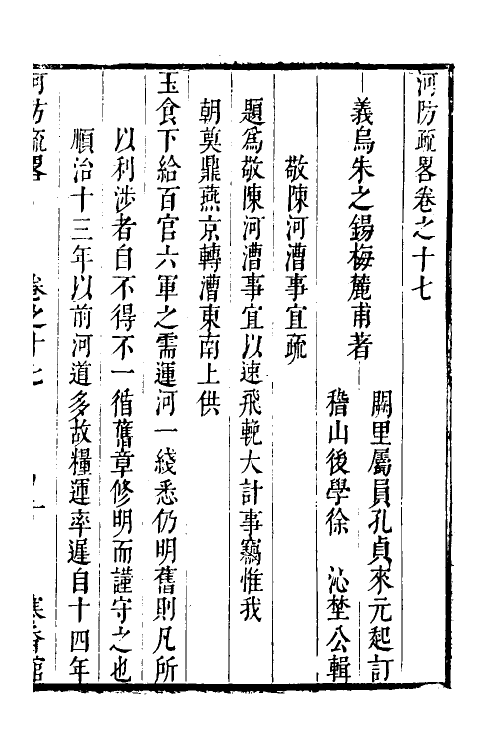 河防疏畧卷之十七
闕里屬員孔貞來元起訂
義烏朱之錫梅麓甫著
稽山後學徐　沁埜公輯
敬陳河漕事宜疏
題爲敬陳河漕事宜以速飛輓大計事竊惟我
朝奠鼎燕京轉漕東南上供
玉食下給百官六軍之需運河一綫悉仍明舊則凡所
以利涉者自不得不一循舊章修明而謹守之也
順治十三年以前河道多故糧運率遲自十四年
河防疏畧
卷之十七
寒香館